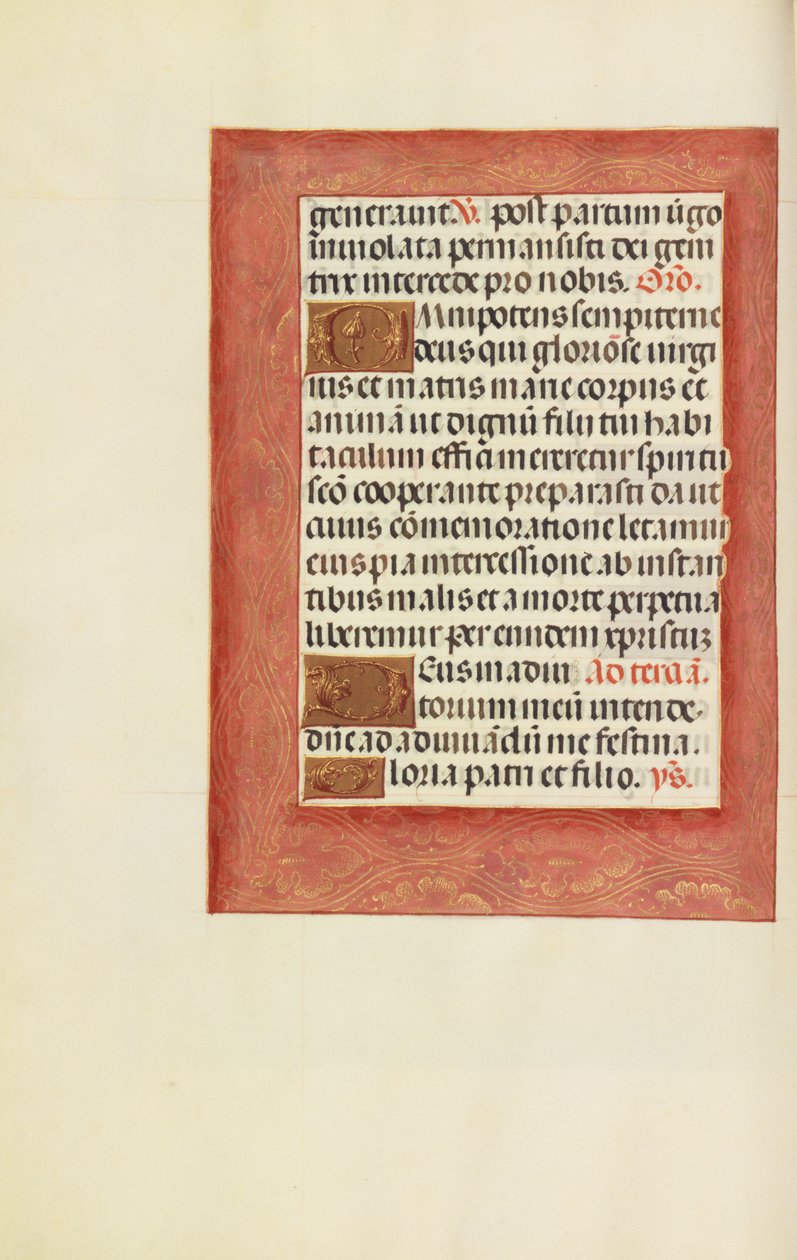 generauit. V̄. post partum ūgo
īnuiolata permansisti dei geni
trix intercede pro nobis. Orō.
OMnipotens sempiterne
deus qui gloriōse uirgi
nis et matris marie corpus et
animā ut dignū filij tui habi
taculum effici mereretur spiritu
scō cooperante preparasti da ut
cuius cōmemoratione letamur
eius pia intercessione ab instan
tibus malis et a morte perpetua
liberemur per eundem xpristuꝫ
DEus in adiu Ad terciā.
torium meū intende.
dn̄e ad adiuuādū me festina.
Gloria patri et filio. ys̄.